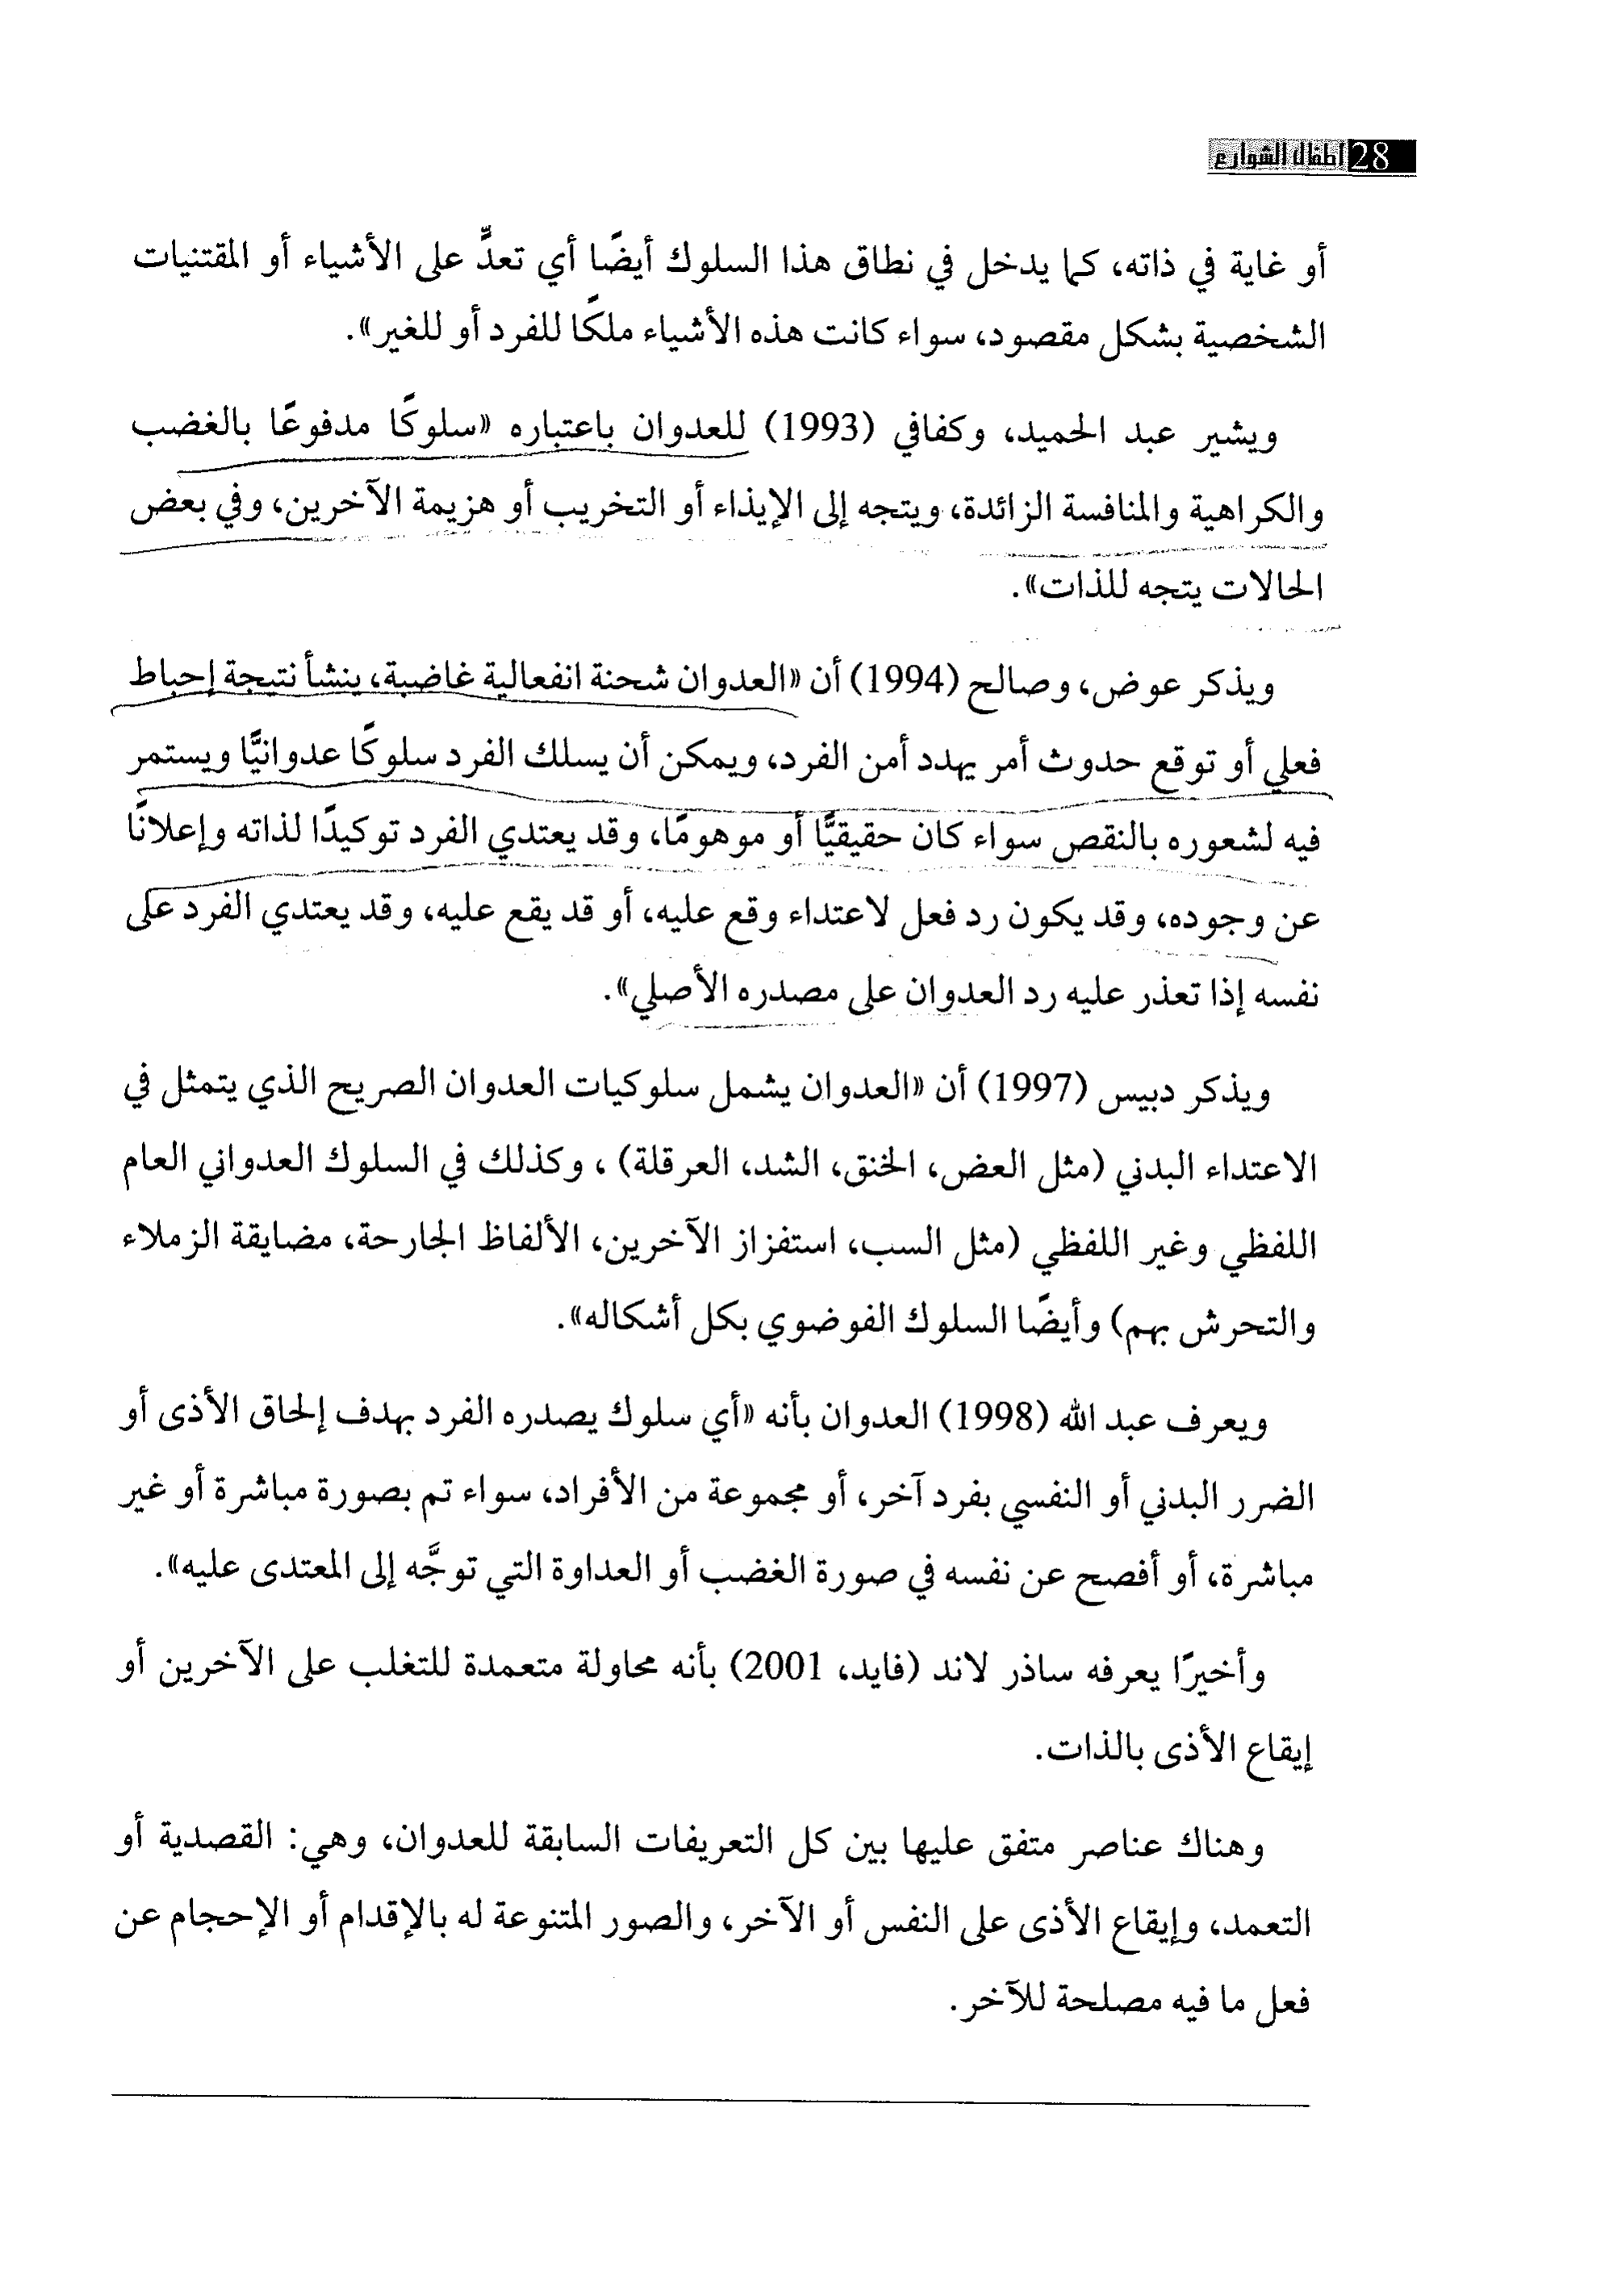 28 أطفال الشوارع
أو غاية في ذاته، كما يدخل في نطاق هذا السلوك أيضًا أي تعدٍّ على الأشياء أو المقتنيات
الشخصية بشكل مقصود، سواء كانت هذه الأشياء ملكًا للفرد أو للغير».
ويشير عبد الحميد، وكفافي (1993) للعدوان باعتباره «سلوكًا مدفوعًا بالغضب
والكراهية والمنافسة الزائدة، ويتجه إلى الإيذاء أو التخريب أو هزيمة الآخرين، وفي بعض
الحالات يتجه للذات».
ويذكر عوض، وصالح (1994) أن «العدوان شحنة انفعالية غاضبة، ينشأ نتيجة إحباط
فعلي أو توقع حدوث أمر يهدد أمن الفرد، ويمكن أن يسلك الفرد سلوكًا عدوانيًّا ويستمر
فيه لشعوره بالنقص سواء كان حقيقيًّا أو موهومًا، وقد يعتدي الفرد توكيدًا لذاته وإعلانًا
عن وجوده، وقد يكون رد فعل لاعتداء وقع عليه، أو قد يقع عليه، وقد يعتدي الفرد على
نفسه إذا تعذر عليه رد العدوان على مصدره الأصلي».
ويذكر دبيس (1997) أن «العدوان يشمل سلوكيات العدوان الصريح الذي يتمثل في
الاعتداء البدني (مثل العض، الخنق، الشد، العرقلة) ، وكذلك في السلوك العدواني العام
اللفظي وغير اللفظي (مثل السب، استفزاز الآخرين، الألفاظ الجارحة، مضايقة الزملاء
والتحرش بهم) وأيضًا السلوك الفوضوي بكل أشكاله».
ويعرف عبد الله (1998) العدوان بأنه «أي سلوك يصدره الفرد بهدف إلحاق الأذى أو
الضرر البدني أو النفسي بفرد آخر، أو مجموعة من الأفراد، سواء تم بصورة مباشرة أو غير
مباشرة، أو أفصح عن نفسه في صورة الغضب أو العداوة التي توجَّه إلى المعتدى عليه».
وأخيرًا يعرفه ساذر لاند (فايد، 2001) بأنه محاولة متعمدة للتغلب على الآخرين أو
إيقاع الأذى بالذات.
وهناك عناصر متفق عليها بين كل التعريفات السابقة للعدوان، وهي: القصدية أو
التعمد، وإيقاع الأذى على النفس أو الآخر، والصور المتنوعة له بالإقدام أو الإحجام عن
فعل ما فيه مصلحة للآخر.